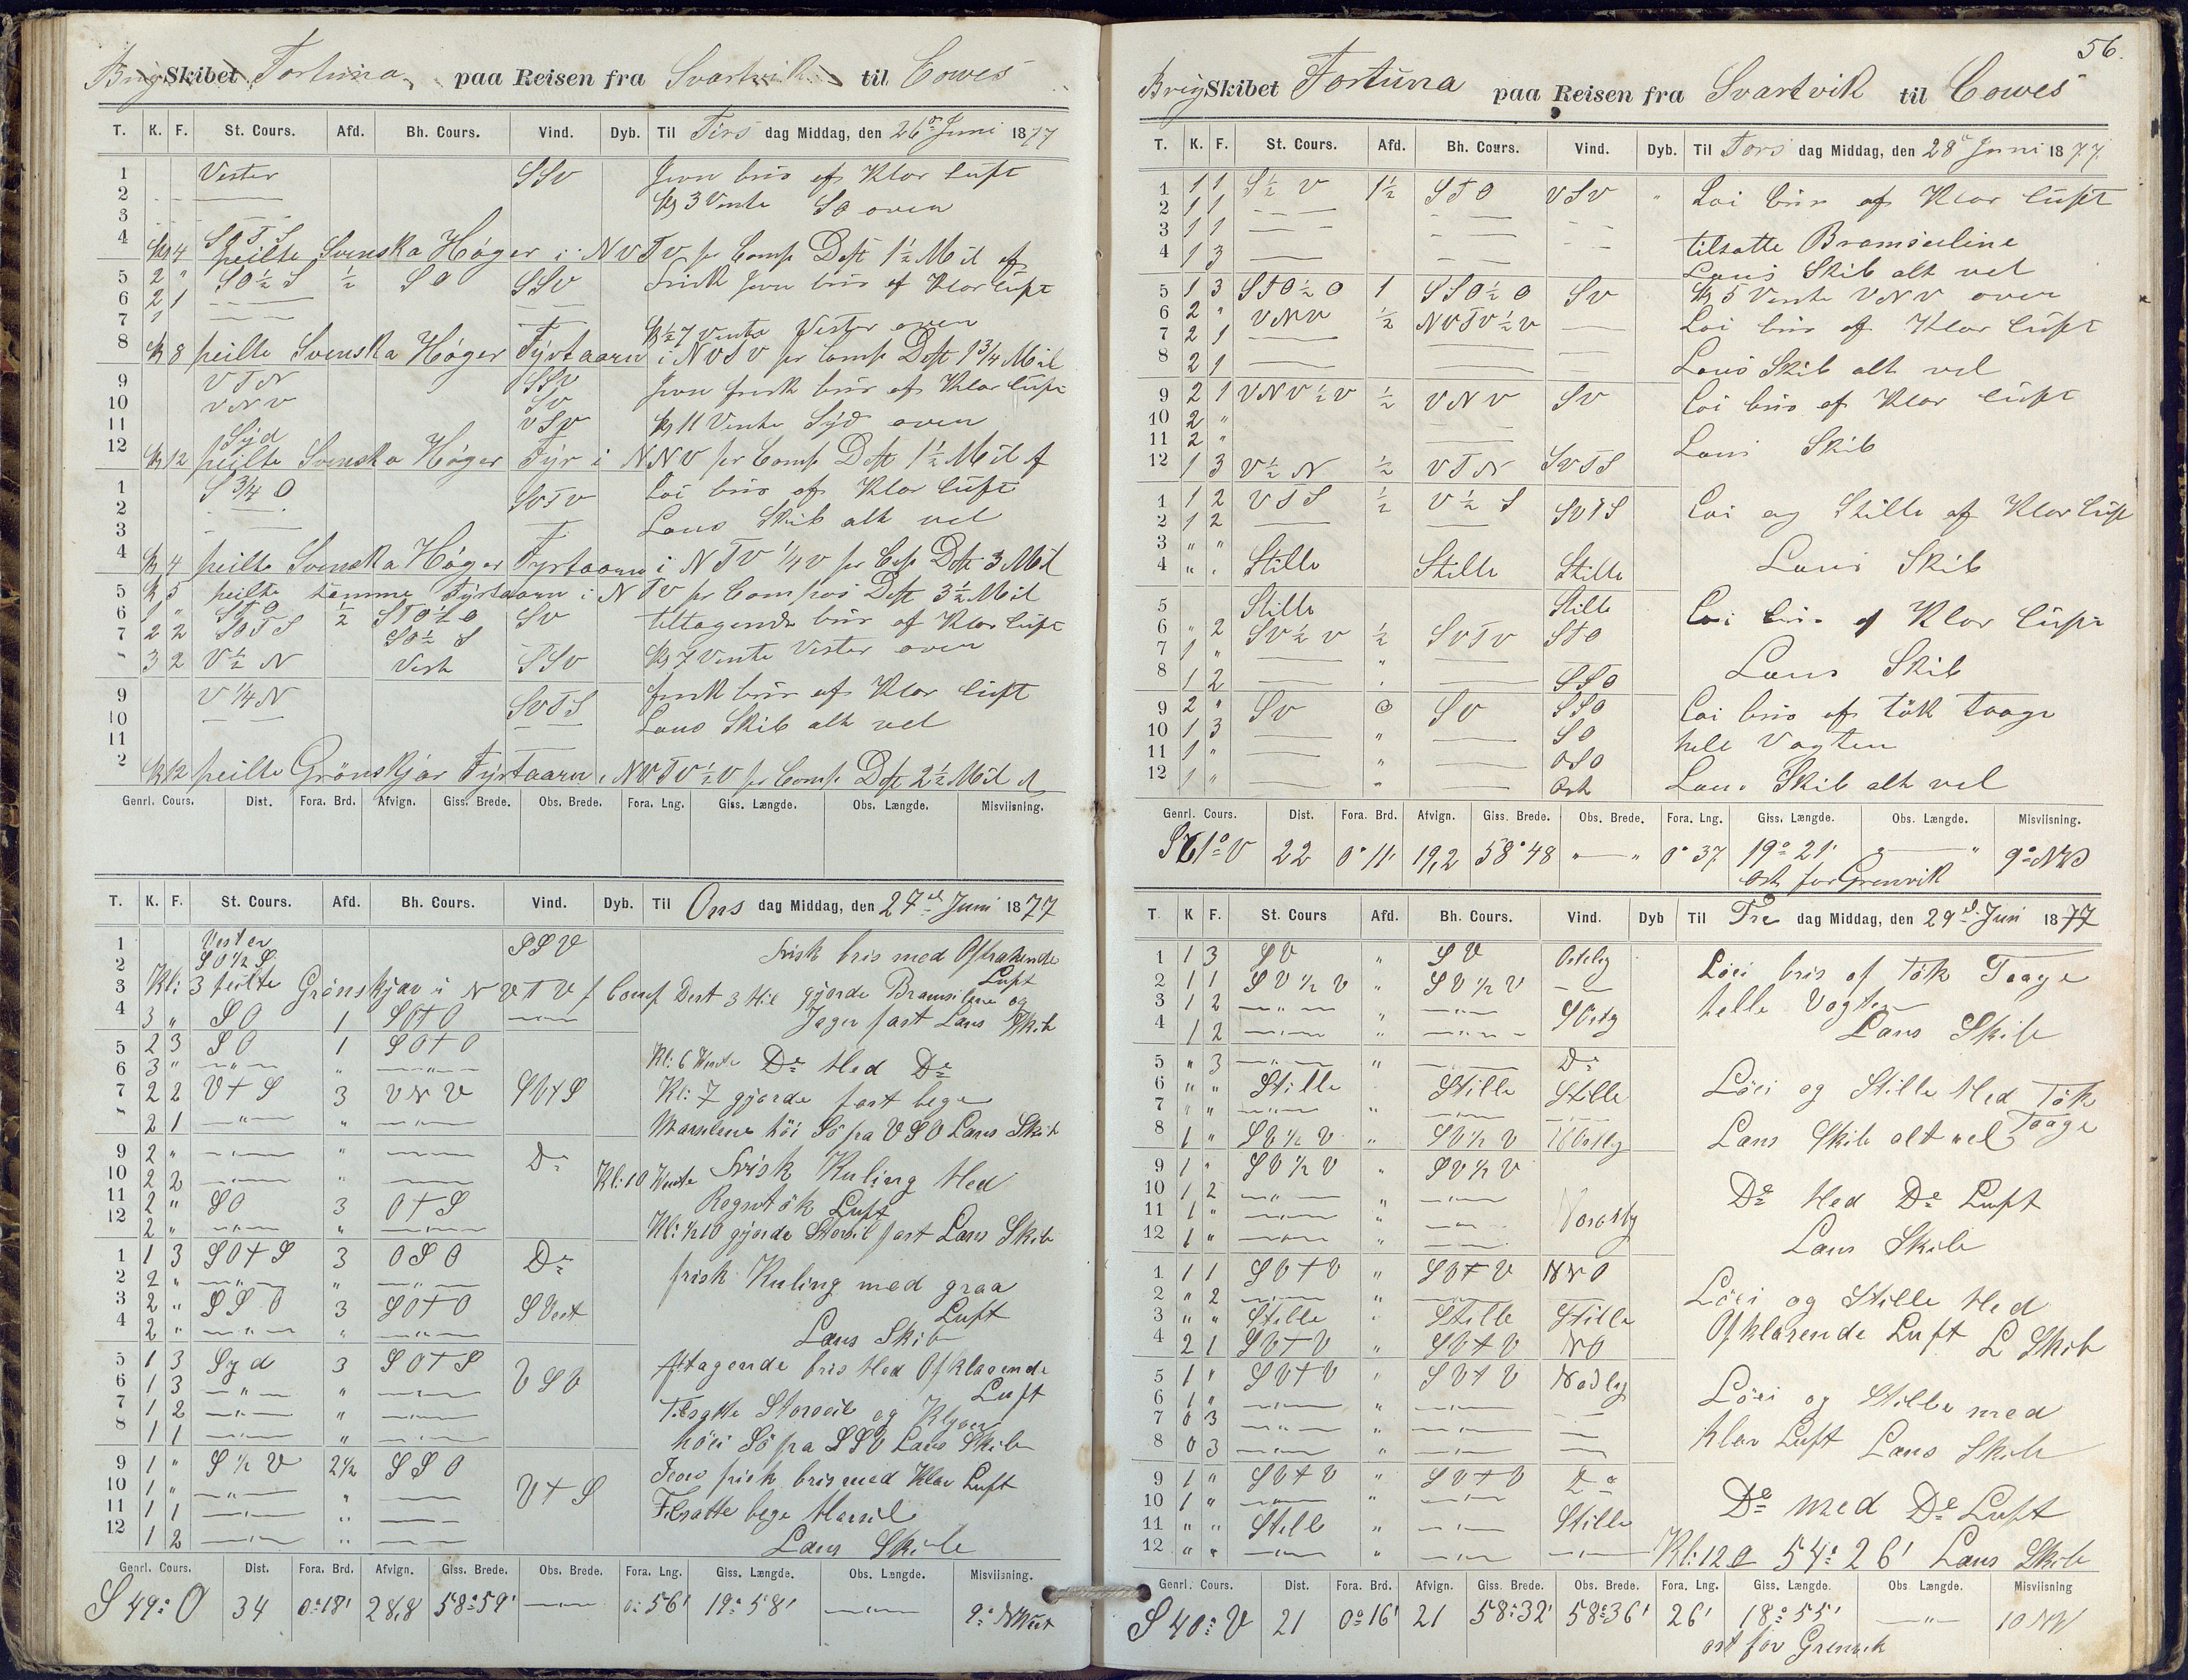 Brig Skibet Fortuna paa Reisen fra Svartvik til Cowes
T. K. F. St. Cours. Afd. Bh. Cours. Vind. Dyb. Til Tirs dag Middag, den 26de Juni 1877
1 Vester SSV Jevn bris af Klar Luft
2 — — Kl 3 Vente SO over
3 — —
4 SOTS
Kl 4 peilte Svenska Høger i NVTV pr Comp Dest 1½ Mil af
5 2 " SO½S ½ SO SSV Frisk Jevn bris af Klar Luft
6 2 1 — —
7 1 — — Kl ½7 Vente Vester over
8 Kl 8 peilte Svenska Høger Fyrtaarn i NVTV pr Comp Dest 1¾ Mil
9 VTN SSV Jevn frisk bris af Klar Luft
10 VNV SV
11 VSV Kl 11 Vente Syd over
12 Syd
Kl 12 peilte Svenska Høger Fyr i NNV pr Comp Dest 1½ Mil af
1 S ¾ O SVTV Loi bris af Klar Luft
2 — —
3 — — Lans Skib alt vel
4 Kl 4 peilte Svenska Høger Fyrtaarn i NTV ¼ V pr Cop Dest 3 Mil
5 Kl 5 peilte samme Fyrtaarn i NTV pr Compas Dest 3½ Mil
6 1 " STO ½ STO½O SV tiltagende bris af Klar Luft
7 2 2 SOTS SO½S
" 3 2 V½N Vest SSV Kl 7 Vente Vester over
9 V¼N SVTS frisk bris af Klar Luft
10 — — Lans Skib alt vel
11 —
12 Kl 12 peilte Grönskjar Fyrtaarn i NVTV½V pr Comp Dest 2½ Mil af
Genrl. Cours. Dist. Fora. Brd. Afvign. Giss. Brede. Obs. Brede. Fora. Lng. Giss. Længde. Obs. Længde. Misviisning.
T. K. F. St. Cours. Afd. Bh. Cours. Vind. Dyb. Til Ons dag Middag, den 27de Juni 1877
1 Vester SSV Frisk bris med Aftrakende
2 SO½S Luft
3 Kl: 3 peilte Grönskjar i NVTV p Comp Dest 3 Mil gjorde Bramseilene og
4 3 " SO 1 SOTO —"— Jager fast Lans Skib
5 2 3 SO 1 SOTO
6 3 " —"— " —"— Kl: 6 Vente De Med De
7 2 2 VTS 3 VNV SVTS Kl: 7 gjorde fast bege
" 2 1 —"— " —"— Marsilene höi Sö pa VSV Lans Skib
9 2 " —"— " —"— De
10 2 2 —"— " —"— Kl: 10 Vente Frisk Kuling Med
11 2 " SO 3 OTS Regntök Luft
12 2 " —"— " —"— Kl: ½10 gjorde Storseil fast Lans Skib
1 1 3 SOTS 3 OSO De frisk Kuling med graa
2 2 " —"— " —"— Luft
3 2 " SSO 3 SOTO SVest
4 2 " —"— " —"— Lans Skib
5 1 3 Syd 3 SOTS VSV Aftagende bris Med Afklarende
6 1 3 —"— " —"— Luft
7 1 2 —"— " —"— Tilsatte Storseil og Klyver
8 1 1 —"— " —"— höi Sö pa SSV Lans Skib
9 1 " S½V 2½ SSO VTS Jevn frisk bris med Klar Luft
10 1 " —"— " —
11 1 1 —"— " — Tilsatte bege Marseil
12 1 2 —"— " — Lans Skib
Genrl. Cours. Dist. Fora. Brd. Afvign. Giss. Brede. Obs. Brede. Fora. Lng. Giss. Længde. Obs. Længde. Misviisning.
S 49° O 34 0°18' 28,8 58°59' —"— 0°56' 19°58' —"— 9° NVest
56.
Brig Skibet Fortuna paa Reisen fra Svartvik til Cowes
T. K. F. St. Cours. Afd. Bh. Cours. Vind. Dyb. Til Tors dag Middag, den 28de Juni 1877
1 1 1 S½V 1½ STO VSV " Loi bris af Klar Luft
2 1 1 — — — —
3 1 1 — — — — tilsatte Bramseiline
4 1 3 — — Lans Skib alt vel
5 1 3 STO½O 1 SSO½O SV Kl 5 Vente VNV over
6 2 " VNV ½ NVTV½V — Loi bris af Klar Luft
7 2 1 — — —
8 2 1 — — — Lans Skib alt vel
9 2 1 VNV½V ½ VNV SV Loi bris af Klar Luft
10 2 "
11 2 " — Lans Skib
12 1 3 V½N ½ VTN SVTS
1 1 2 VTS ½ V½S SVTS Loi og Stille af Klar Luft
2 1 2 — —
3 " " Lans Skib
4 " " Stille Stille Stille
5 Stille Stille Loi bris af Klar Luft
6 " 2 SV½V ½ SVTV STO
7 1 " — " — Lans Skib
8 1 2 — " — SSO
9 2 " SV 0 SV SSO Loi bris af tök Taage
10 1 3 — " — SO hele Vagten
11 1 " — " — OSO
12 1 " — " — Ost Lans Skib alt vel
Genrl. Cours. Dist. Fora. Brd. Afvign. Giss. Brede. Obs. Brede. Fora. Lng. Giss. Længde. Obs. Længde. Misviisning.
S 61° V 22 0°11' 19,2 58°48 "—" 0°37 19°21' "—" 9° NV
ost for Grenvik
T. K F. St. Cours Afd. Bh. Cours. Vind. Dyb Til Fre dag Middag, den 29de Juni 1877
1 1 3 SV " SV Ostlig Löei bris af Tök Taage
2 1 1 SV½V SV½V — helle Vagten
3 1 2 —"— " —"—
4 1 2 —"— " —"— SOstlg Lans Skib
5 " 3 —"— " —"— De
6 " " Stille Stille Stille Löei og Stille Med Tök
7 " " —"— " —"— Taage
8 1 " SV½V " SV½V Lans Skib alt vel
9 1 " SV½V " SV½V
10 1 2 —"— " —"— De Med De Luft
11 1 " —"— " —"—
12 1 " —"— " —"— Lans Skib
1 1 1 SVTV " SVTV NNO Löei og Stille Med
2 " 2 —"— " —"—
3 " " Stille " Stille Stille Afklarende Luft L Skib
4 2 1 SVTV " SVTV NO
5 1 " SVTV " SVTV Nodlig Löei og Stille med
6 1 " —"— " —"— —
7 0 3 —"— " —"— —
8 0 3 —"— " —"— — Klar Luft Lans Skib
9 1 " SVTV " SVTV De
10 1 " —"— " —"— De med De Luft
11 " " Still " —"— Stille
12 " " —"— " —"— —"— Kl: 12 54° 26' Lans Skib
Genrl. Cours. Dist. Fora. Brd. Afvign. Giss. Brede. Obs. Brede. Fora. Lng. Giss. Længde. Obs Længde. Misviisning
S 40° V 21 0°16' 21 58°32' 58°36' 26' 18°55' —"— 10 NV
ost for Grenvik